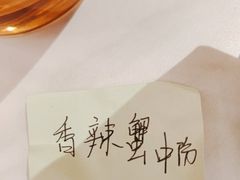 香辣蟹中份